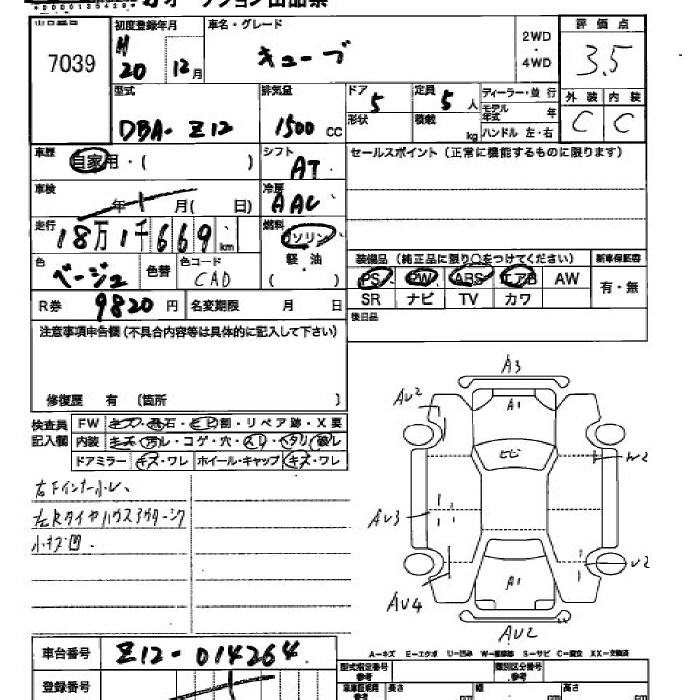 オークション出品票
出品番号
7039
初度登録年月
H
20 12月
車名・グレード
キューブ
2WD
・
4WD
評価点
3.5
型式
DBA-Z12
排気量
1500 CC
ドア
5
形状
定員
5 人
積載
kg
ディーラー・並行
モデル年式 年
ハンドル 左・右
外装 内装
C C
車歴
自家用・( )
シフト
AT
セールスポイント(正常に機能するものに限ります)
車検
年 月( 日)
冷房
AAC
走行
18万1千669km
燃料
ガソリン
軽・油
色
ベージュ
色替
色コード
CAD
装備品(純正品に限り○をつけてください)
新車保証書
PS PW ABS エアB AW
有・無
SR ナビ TV カワ
R券 9820円
名変期限 月 日
後日品
注意事項申告欄(不具合内容等は具体的に記入して下さい)
修復歴 有 〔箇所 〕
検査員
記入欄
FW キズ・飛石・ヒビ割・リペア跡・X要
内装 キズ・穴・コゲ・スレ・破レ
ドアミラー キズ・ワレ ホイール・キャップ キズ・ワレ
小キズ凹.
A3
AU2
A1
ヒビ
W2
AU3
U2
A1
AU4
AU2
A-キズ E-エクボ U-凹み W-補修跡 S-サビ C-腐食 XX-交換済
車台番号
Z12-014264
登録番号
型式指定番号
参考
類別区分番号
参考
長さ
幅
高さ